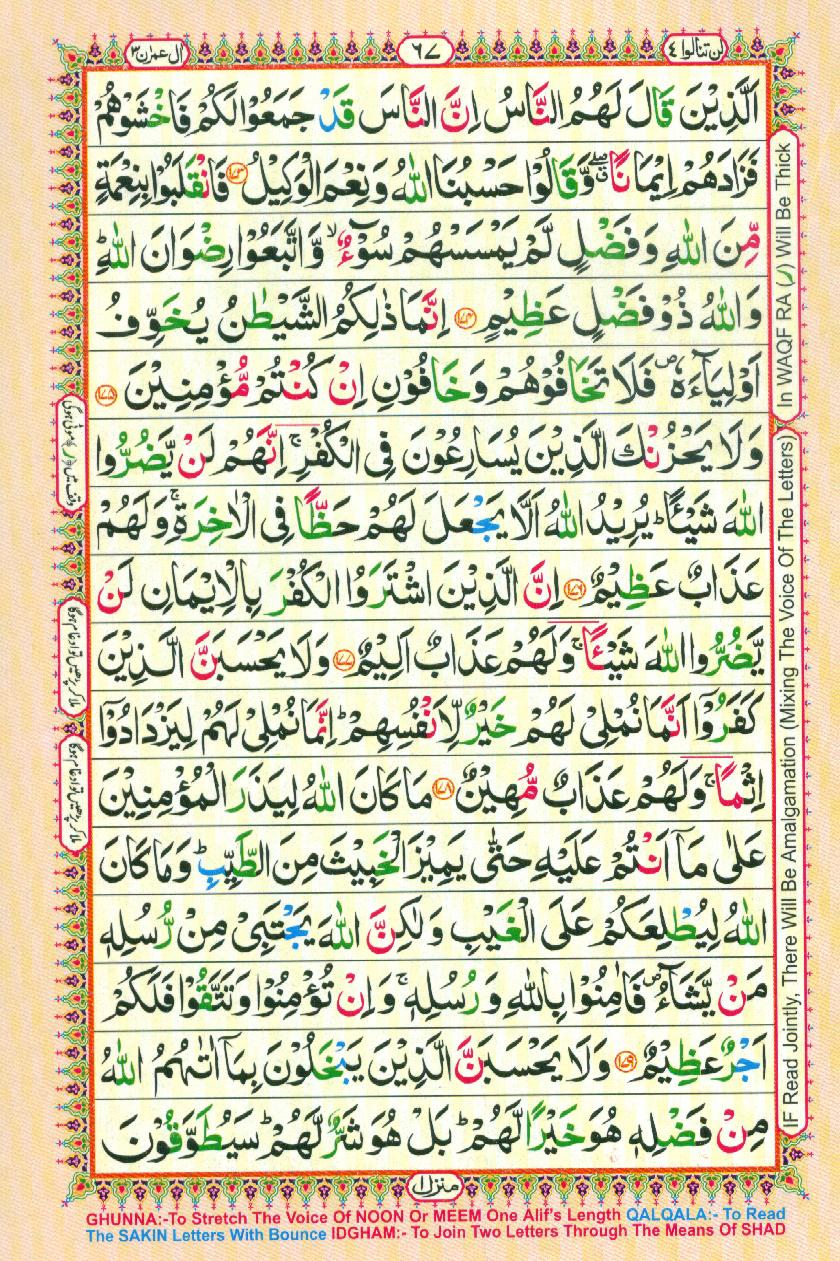 لن تنالوا ٤
٦٧
اٰل عمرٰن ٣
اَلَّذِيْنَ قَالَ لَهُمُ النَّاسُ اِنَّ النَّاسَ قَدْ جَمَعُوْا لَكُمْ فَاخْشَوْهُمْ
فَزَادَهُمْ اِيْمَانًا ۖۗ وَّ قَالُوْا حَسْبُنَا اللّٰهُ وَ نِعْمَ الْوَكِيْلُ ﴿۱۷۳﴾ فَانْقَلَبُوْا بِنِعْمَةٍ
مِّنَ اللّٰهِ وَ فَضْلٍ لَّمْ يَمْسَسْهُمْ سُوْٓءٌ ۙ وَّ اتَّبَعُوْا رِضْوَانَ اللّٰهِ ؕ
وَ اللّٰهُ ذُوْ فَضْلٍ عَظِيْمٍ ﴿۱۷۴﴾ اِنَّمَا ذٰلِكُمُ الشَّيْطٰنُ يُخَوِّفُ
اَوْلِيَآءَهٗ ۪ فَلَا تَخَافُوْهُمْ وَ خَافُوْنِ اِنْ كُنْتُمْ مُّؤْمِنِيْنَ ﴿۱۷۵﴾
وَ لَا يَحْزُنْكَ الَّذِيْنَ يُسَارِعُوْنَ فِى الْكُفْرِ ۚ اِنَّهُمْ لَنْ يَّضُرُّوا
اللّٰهَ شَيْـًٔا ؕ يُرِيْدُ اللّٰهُ اَلَّا يَجْعَلَ لَهُمْ حَظًّا فِى الْاٰخِرَةِ ۚ وَ لَهُمْ
عَذَابٌ عَظِيْمٌ ﴿۱۷۶﴾ اِنَّ الَّذِيْنَ اشْتَرَوُا الْكُفْرَ بِالْاِيْمَانِ لَنْ
يَّضُرُّوا اللّٰهَ شَيْـًٔا ۚ وَ لَهُمْ عَذَابٌ اَلِيْمٌ ﴿۱۷۷﴾ وَ لَا يَحْسَبَنَّ الَّذِيْنَ
كَفَرُوْۤا اَنَّمَا نُمْلِىْ لَهُمْ خَيْرٌ لِّاَنْفُسِهِمْ ؕ اِنَّمَا نُمْلِىْ لَهُمْ لِيَزْدَادُوْۤا
اِثْمًا ۚ وَ لَهُمْ عَذَابٌ مُّهِيْنٌ ﴿۱۷۸﴾ مَا كَانَ اللّٰهُ لِيَذَرَ الْمُؤْمِنِيْنَ
عَلٰى مَاۤ اَنْتُمْ عَلَيْهِ حَتّٰى يَمِيْزَ الْخَبِيْثَ مِنَ الطَّيِّبِ ؕ وَ مَا كَانَ
اللّٰهُ لِيُطْلِعَكُمْ عَلَى الْغَيْبِ وَ لٰكِنَّ اللّٰهَ يَجْتَبِىْ مِنْ رُّسُلِهٖ
مَنْ يَّشَآءُ ۪ فَاٰمِنُوْا بِاللّٰهِ وَ رُسُلِهٖ ۚ وَ اِنْ تُؤْمِنُوْا وَ تَتَّقُوْا فَلَكُمْ
اَجْرٌ عَظِيْمٌ ﴿۱۷۹﴾ وَ لَا يَحْسَبَنَّ الَّذِيْنَ يَبْخَلُوْنَ بِمَاۤ اٰتٰىهُمُ اللّٰهُ
مِنْ فَضْلِهٖ هُوَ خَيْرًا لَّهُمْ ؕ بَلْ هُوَ شَرٌّ لَّهُمْ ؕ سَيُطَوَّقُوْنَ
In WAQF RA (ر) Will Be Thick
IF Read Jointly, There Will Be Amalgamation (Mixing The Voice Of The Letters)
وقف میں (ر) موٹی ہوگی
ملا کر پڑھیں تو ادغام ہوگا
ملا کر پڑھیں تو ادغام ہوگا
منزل ١
GHUNNA:-To Stretch The Voice Of NOON Or MEEM One Alif's Length QALQALA:- To Read
The SAKIN Letters With Bounce IDGHAM:- To Join Two Letters Through The Means Of SHAD